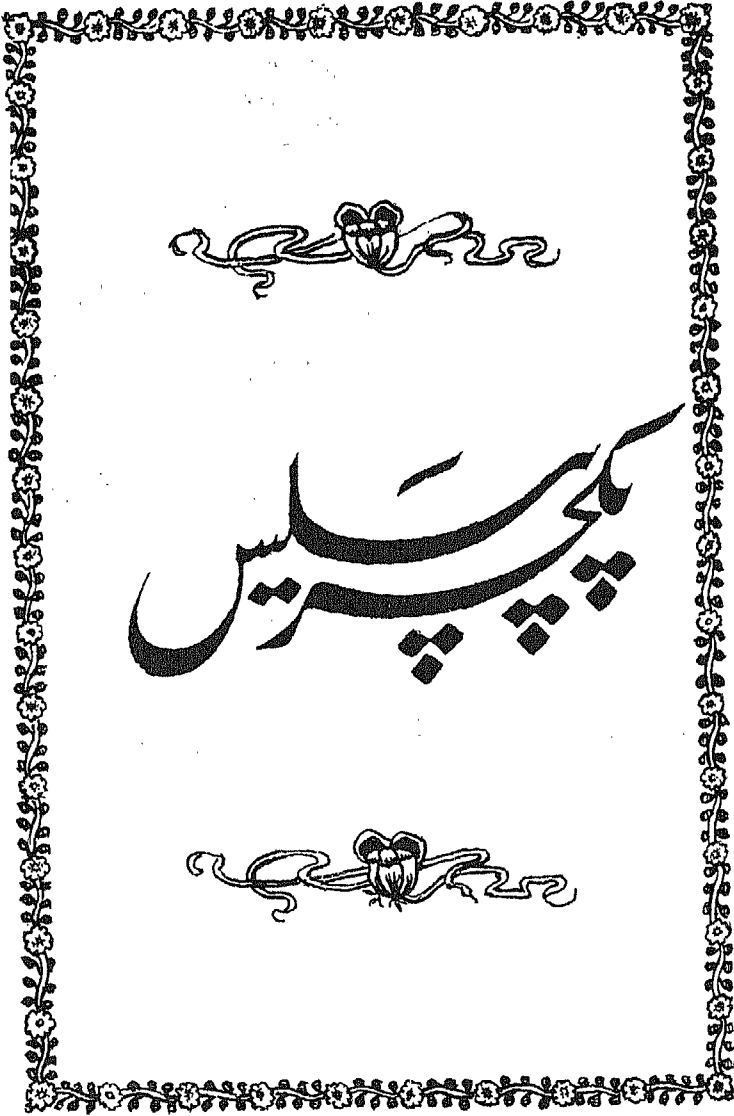 پکچر پیلیس